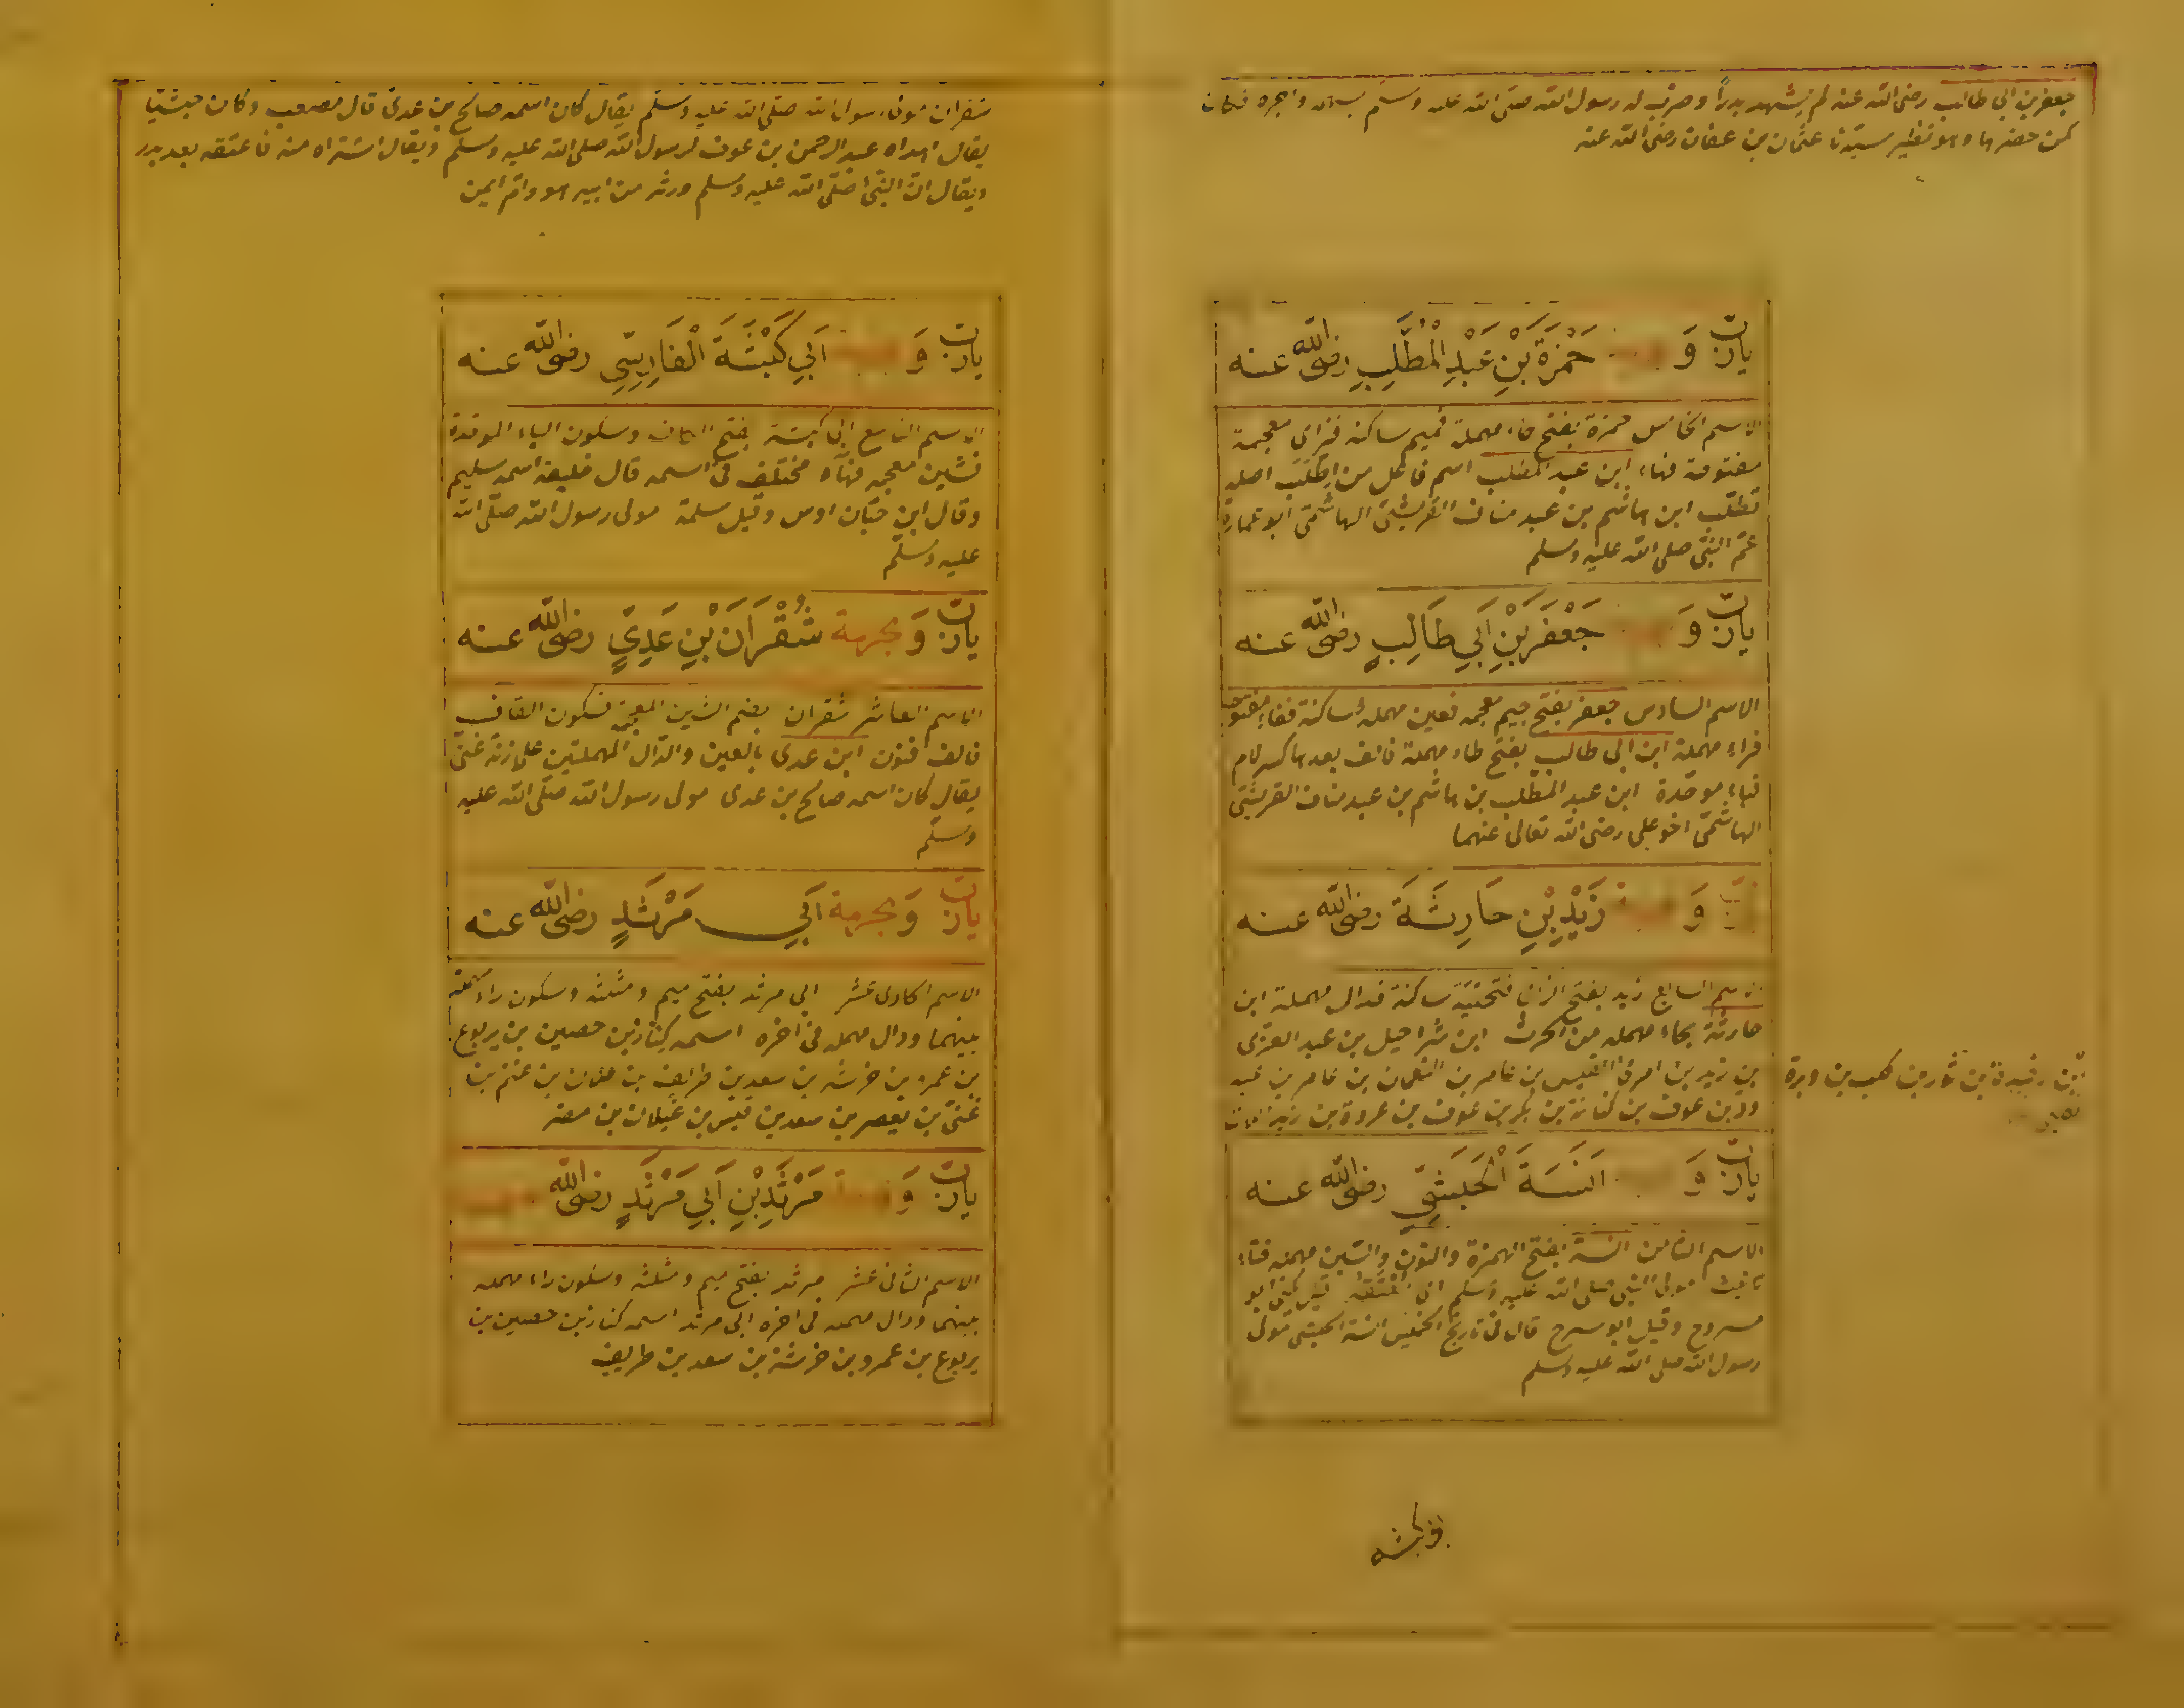 جعفر بن ابى طالب رضى الله عنه لم يشهد بدراً وضرب له رسول الله صلى الله عليه وسلم بسهمه واجره فكان
كمن حضرها وهو نظير سيدنا عثمان بن عفان رضى الله عنه
يارب و حَمْزَةَ بْنِ عَبْدِ الْمُطَّلِبِ رضى الله عنه
الاسم الخامس حمزة بفتح حاء مهملة فميم ساكنة فزاى معجمة
مفتوحة فهاء ابن عبد المطلب اسم فاعل من اطلب اصله
تطلب ابن هاشم بن عبد مناف القريشى الهاشمى ابو عمارة
عم النبى صلى الله عليه وسلم
يارب و جَعْفَرِ بْنِ اَبِي طَالِبٍ رضى الله عنه
الاسم السادس جعفر بفتح جيم معجمه فعين مهملة ساكنة ففاء مفتوحة
فراء مهملة ابن ابى طالب بفتح طاء مهملة فالف بعدها كسر لام
فباء موحدة ابن عبد المطلب بن هاشم بن عبد مناف القريشى
الهاشمى اخو على رضى الله تعالى عنهما
وَ زَيْدِ بْنِ حَارِثَةَ رضى الله عنه
الاسم السابع زيد بفتح الزاى فتحتية ساكنة فدال مهملة ابن
حارثة بحاء مهمله من الحرث ابن شراحيل بن عبد العزى
بن زيد بن امرئ القيس بن عامر بن النعمان بن عامر بن عبد
ود بن عوف بن كنانة بن بكر بن عوف بن عروة بن زيد اللات
بن رفيدة بن ثور بن كلب بن وبرة
يارب و اَنَسَةَ الْحَبَشِيِّ رضى الله عنه
الاسم الثامن انسة بفتح الهمزة والنون والسين مهمله فتاء
تانيث مولى النبى صلى الله عليه وسلم قيل يكنى ابو
مسروح وقيل ابو سرح قال فى تاريخ الخميس انسة الحبشى مولى
رسول الله صلى الله عليه وسلم
ابى كبشه
شقران مولى رسول الله صلى الله عليه وسلم يقال كان اسمه صالح بن عدى قال مصعب وكان حبشيا
يقال اهداه عبد الرحمن بن عوف لرسول الله صلى الله عليه وسلم ويقال اشتراه منه فاعتقه بعد بدر
ويقال ان النبى صلى الله عليه وسلم ورثه من ابيه هو وام ايمن
يارب وَ اَبِي كَبْشَةَ الْفَارِسِيِّ رضى الله عنه
الاسم التاسع ابى كبشة بفتح الكاف وسكون الباء الموحدة
فشين معجمه فهاء مختلف فى اسمه قال خليفة اسمه سليم
وقال ابن حبان اوس وقيل سلمة مولى رسول الله صلى الله
عليه وسلم
يارب وَبحرمة شُقْرَانَ بْنِ عَدِيٍّ رضى الله عنه
الاسم العاشر شقران بضم الشين المعجمة فسكون القاف
فالف فنون ابن عدى بالعين والدال المهملتين على زنة غنى
يقال كان اسمه صالح بن عدى مولى رسول الله صلى الله عليه
وسلم
يارب وَبحرمة اَبِي مَرْثَدٍ رضى الله عنه
الاسم الحادى عشر ابى مرثد بفتح ميم ومثلثه وسكون راء مهملة
بينهما ودال مهمله فى اخره اسمه كناز بن حصين بن يربوع
بن عمرو بن خرشه بن سعد بن طريف بن جلان بن غنم بن
غنى بن يعصر بن سعد بن قيس بن غيلان بن مضر
يارب وَ مَرْثَدِ بْنِ اَبِي مَرْثَدٍ رضى الله
الاسم الثانى عشر مرثد بفتح ميم ومثلثه وسكون راء مهمله
بينهما ودال مهمله فى اخره ابى مرثد اسمه كناز بن حصين بن
يربوع بن عمرو بن خرشة بن سعد بن طريف